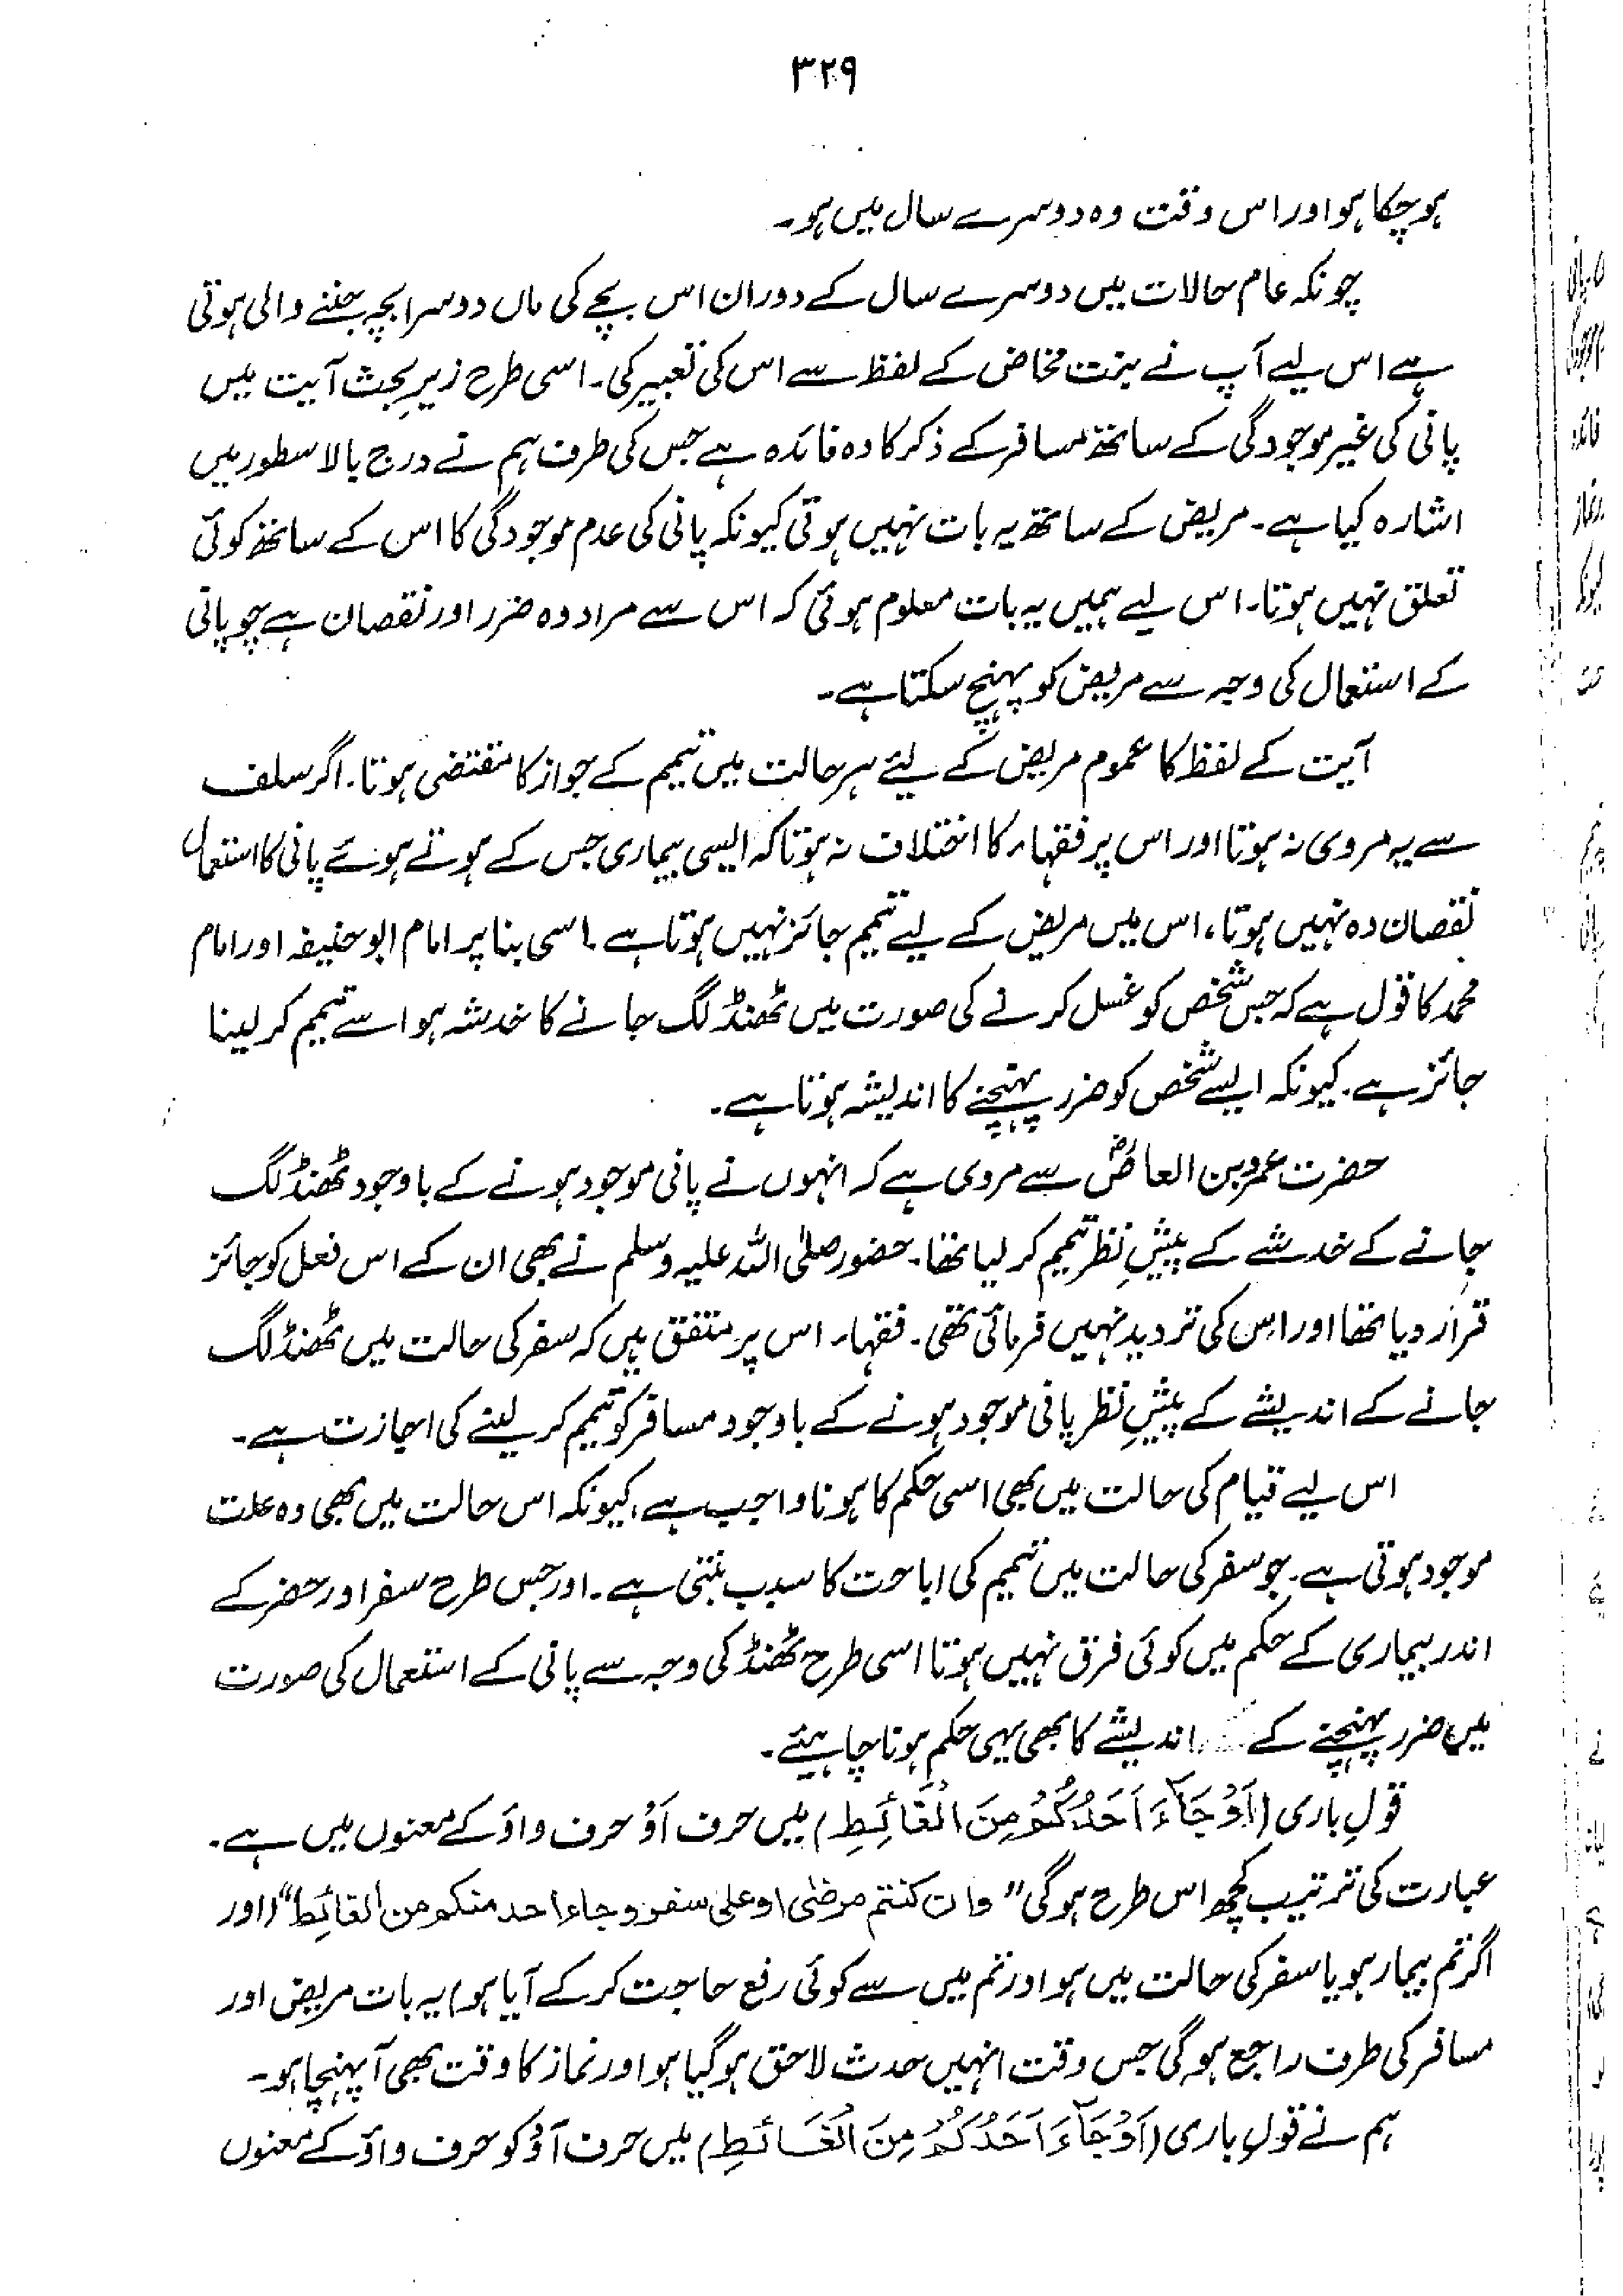 ۳۲۹
ہو چکا ہو اور اس وقت وہ دوسرے سال میں ہو۔
چونکہ عام حالات میں دوسرے سال کے دوران اس بچے کی ماں دوسرا بچہ جننے والی ہوتی
ہے اس لیے آپ نے بنت مخاض کے لفظ سے اس کی تعبیر کی۔ اسی طرح زیرِ بحث آیت میں
پانی کی غیر موجودگی کے ساتھ مسافر کے ذکر کا وہ فائدہ ہے جس کی طرف ہم نے درج بالا سطور میں
اشارہ کیا ہے۔ مریض کے ساتھ یہ بات نہیں ہوتی کیونکہ پانی کی عدم موجودگی کا اس کے ساتھ کوئی
تعلق نہیں ہوتا۔ اس لیے ہمیں یہ بات معلوم ہوئی کہ اس سے مراد وہ ضرر اور نقصان ہے جو پانی
کے استعمال کی وجہ سے مریض کو پہنچ سکتا ہے۔
آیت کے لفظ کا عموم مریض کے لیئے ہر حالت میں تیمم کے جواز کا مقتضی ہوتا۔ اگر سلف
سے یہ مروی نہ ہوتا اور اس پر فقہاء کا اختلاف نہ ہوتا کہ ایسی بیماری جس کے ہوتے ہوئے پانی کا استعمال
نقصان دہ نہیں ہوتا، اس میں مریض کے لیے تیمم جائز نہیں ہوتا ہے۔ اسی بنا پر امام ابوحنیفہ اور امام
محمد کا قول ہے کہ جس شخص کو غسل کرنے کی صورت میں ٹھنڈ لگ جانے کا خدشہ ہو اسے تیمم کر لینا
جائز ہے۔ کیونکہ ایسے شخص کو ضرر پہنچنے کا اندیشہ ہوتا ہے۔
حضرت عمرو بن العاصؓ سے مروی ہے کہ انہوں نے پانی موجود ہونے کے باوجود ٹھنڈ لگ
جانے کے خدشے کے پیشِ نظر تیمم کر لیا تھا۔ حضور صلی اللہ علیہ وسلم نے بھی ان کے اس فعل کو جائز
قرار دیا تھا اور اس کی تردید نہیں فرمائی تھی۔ فقہاء اس پر متفق ہیں کہ سفر کی حالت میں ٹھنڈ لگ
جانے کے اندیشے کے پیشِ نظر پانی موجود ہونے کے باوجود مسافر کو تیمم کر لینے کی اجازت ہے۔
اس لیے قیام کی حالت میں بھی اسی حکم کا ہونا واجب ہے، کیونکہ اس حالت میں بھی وہ علت
موجود ہوتی ہے۔ جو سفر کی حالت میں تیمم کی اباحت کا سبب بنتی ہے۔ اور جس طرح سفر اور حضر کے
اندر بیماری کے حکم میں کوئی فرق نہیں ہوتا اسی طرح ٹھنڈ کی وجہ سے پانی کے استعمال کی صورت
میں ضرر پہنچنے کے اندیشے کا بھی یہی حکم ہونا چاہیئے۔
قولِ باری (اَوْ جَآءَ اَحَدٌ مِّنْكُمْ مِنَ الْغَائِطِ) میں حرف اَوْ حرف واؤ کے معنوں میں ہے۔
عبارت کی ترتیب کچھ اس طرح ہو گی "وان كنتم مرضىٰ او على سفر وجاء احد منكم من الغائط" (اور
اگر تم بیمار ہو یا سفر کی حالت میں ہو اور تم میں سے کوئی رفع حاجت کر کے آیا ہو) یہ بات مریض اور
مسافر کی طرف راجع ہو گی جس وقت انہیں حدث لاحق ہو گیا ہو اور نماز کا وقت بھی آ پہنچا ہو۔
ہم نے قول باری (اَوْ جَآءَ اَحَدُكُمْ مِنَ الْغَائِطِ) میں حرف اَوْ کو حرف واؤ کے معنوں